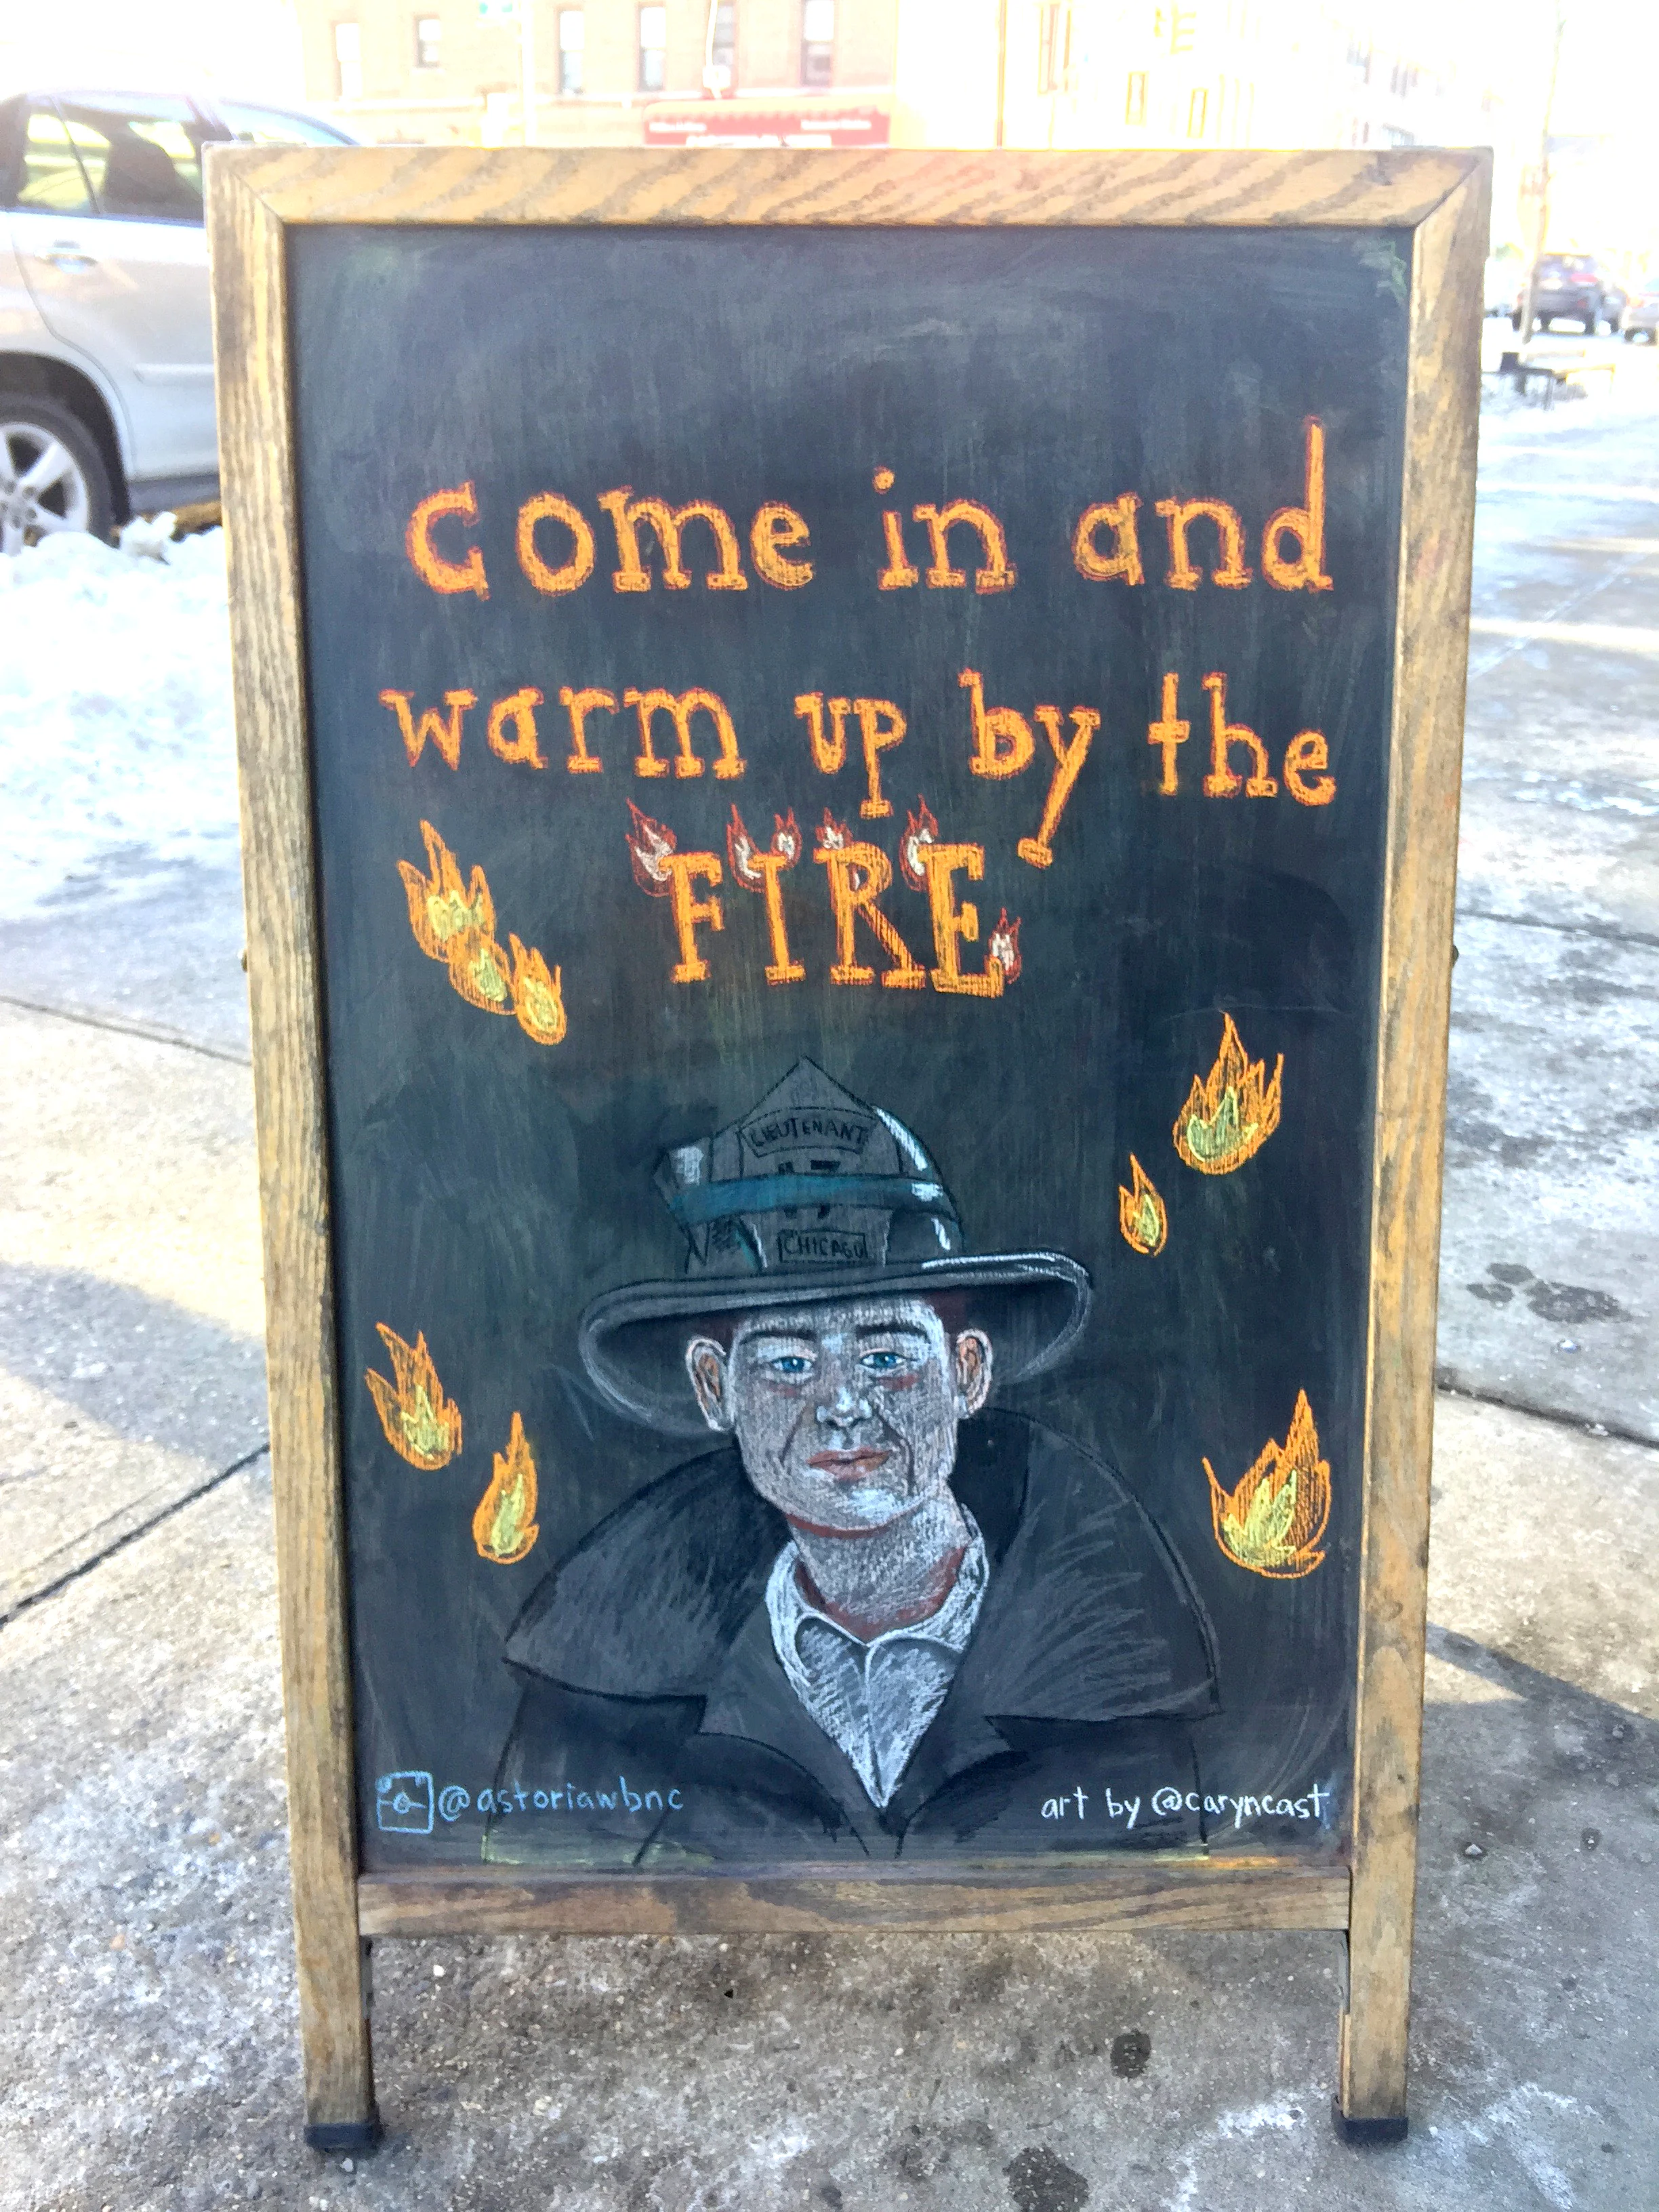 come in and
warm up by the
FIRE
LIEUTENANT
17
CHICAGO
@astoriawbnc
art by @caryncast